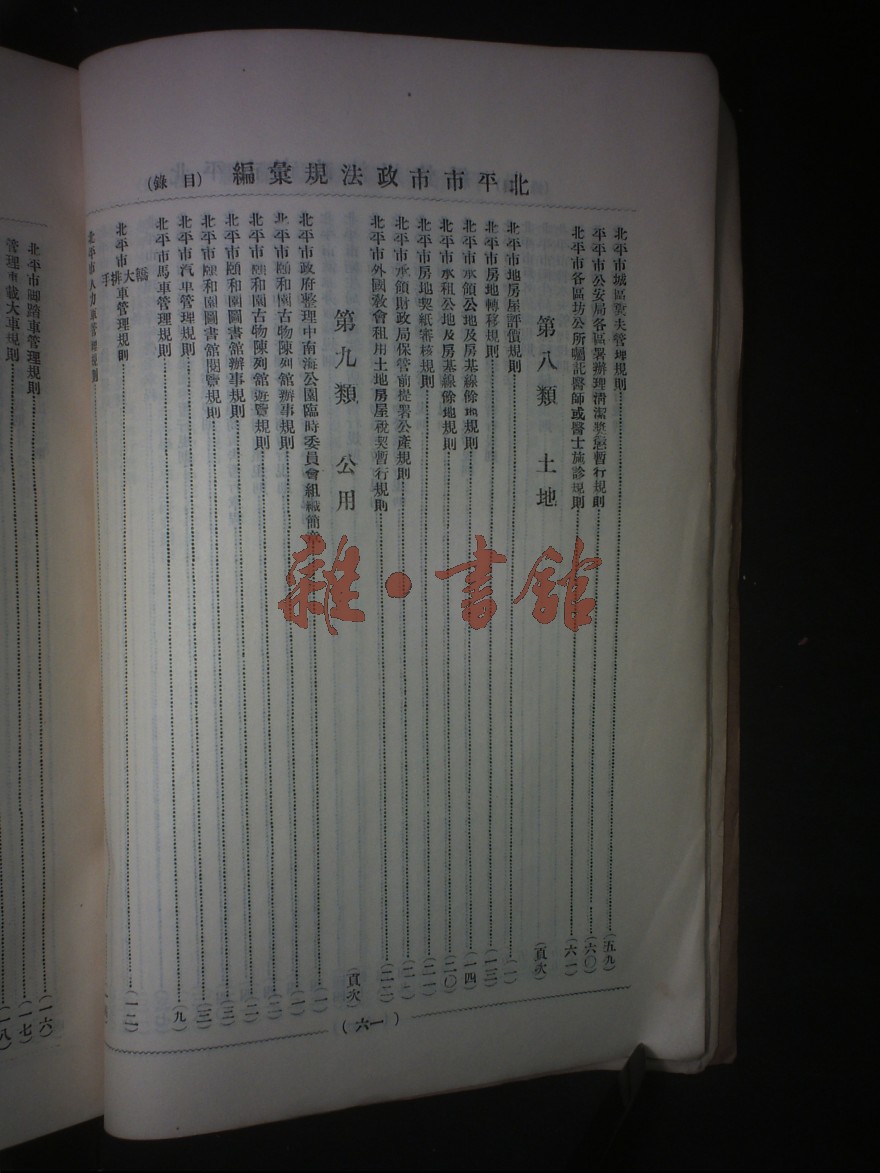 北平市市政法規彙編 (目錄)
北平市城區糞夫管理規則 (五九)
北平市公安局各區署辦理清潔獎懲暫行規則 (六〇)
北平市各區坊公所囑託醫師或醫士施診規則 (六一)
第八類 土地 (頁次)
北平市地房屋評價規則 (一)
北平市房地轉移規則 (一三)
北平市承領公地及房基線餘地規則 (一四)
北平市承租公地及房基線餘地規則 (二〇)
北平市房地契紙審核規則 (二一)
北平市承領財政局保管前提署公產規則
北平市外國教會租用土地房屋稅契暫行規則 (二二)
第九類 公用 (頁次)
北平市政府整理中南海公園臨時委員會組織簡章 (一)
北平市頤和園古物陳列館辦事規則 (一)
北平市頤和園古物陳列館遊覽規則 (二)
北平市頤和園圖書館辦事規則 (三)
北平市頤和園圖書館閱覽規則 (三)
北平市汽車管理規則 (九)
北平市馬車管理規則
北平市大排手車管理規則 (一二)
北平市人力車管理規則
(一六)
北平市腳踏車管理規則 (一六)
管理車載大車規則 (一七)
(一八)
雜·書館